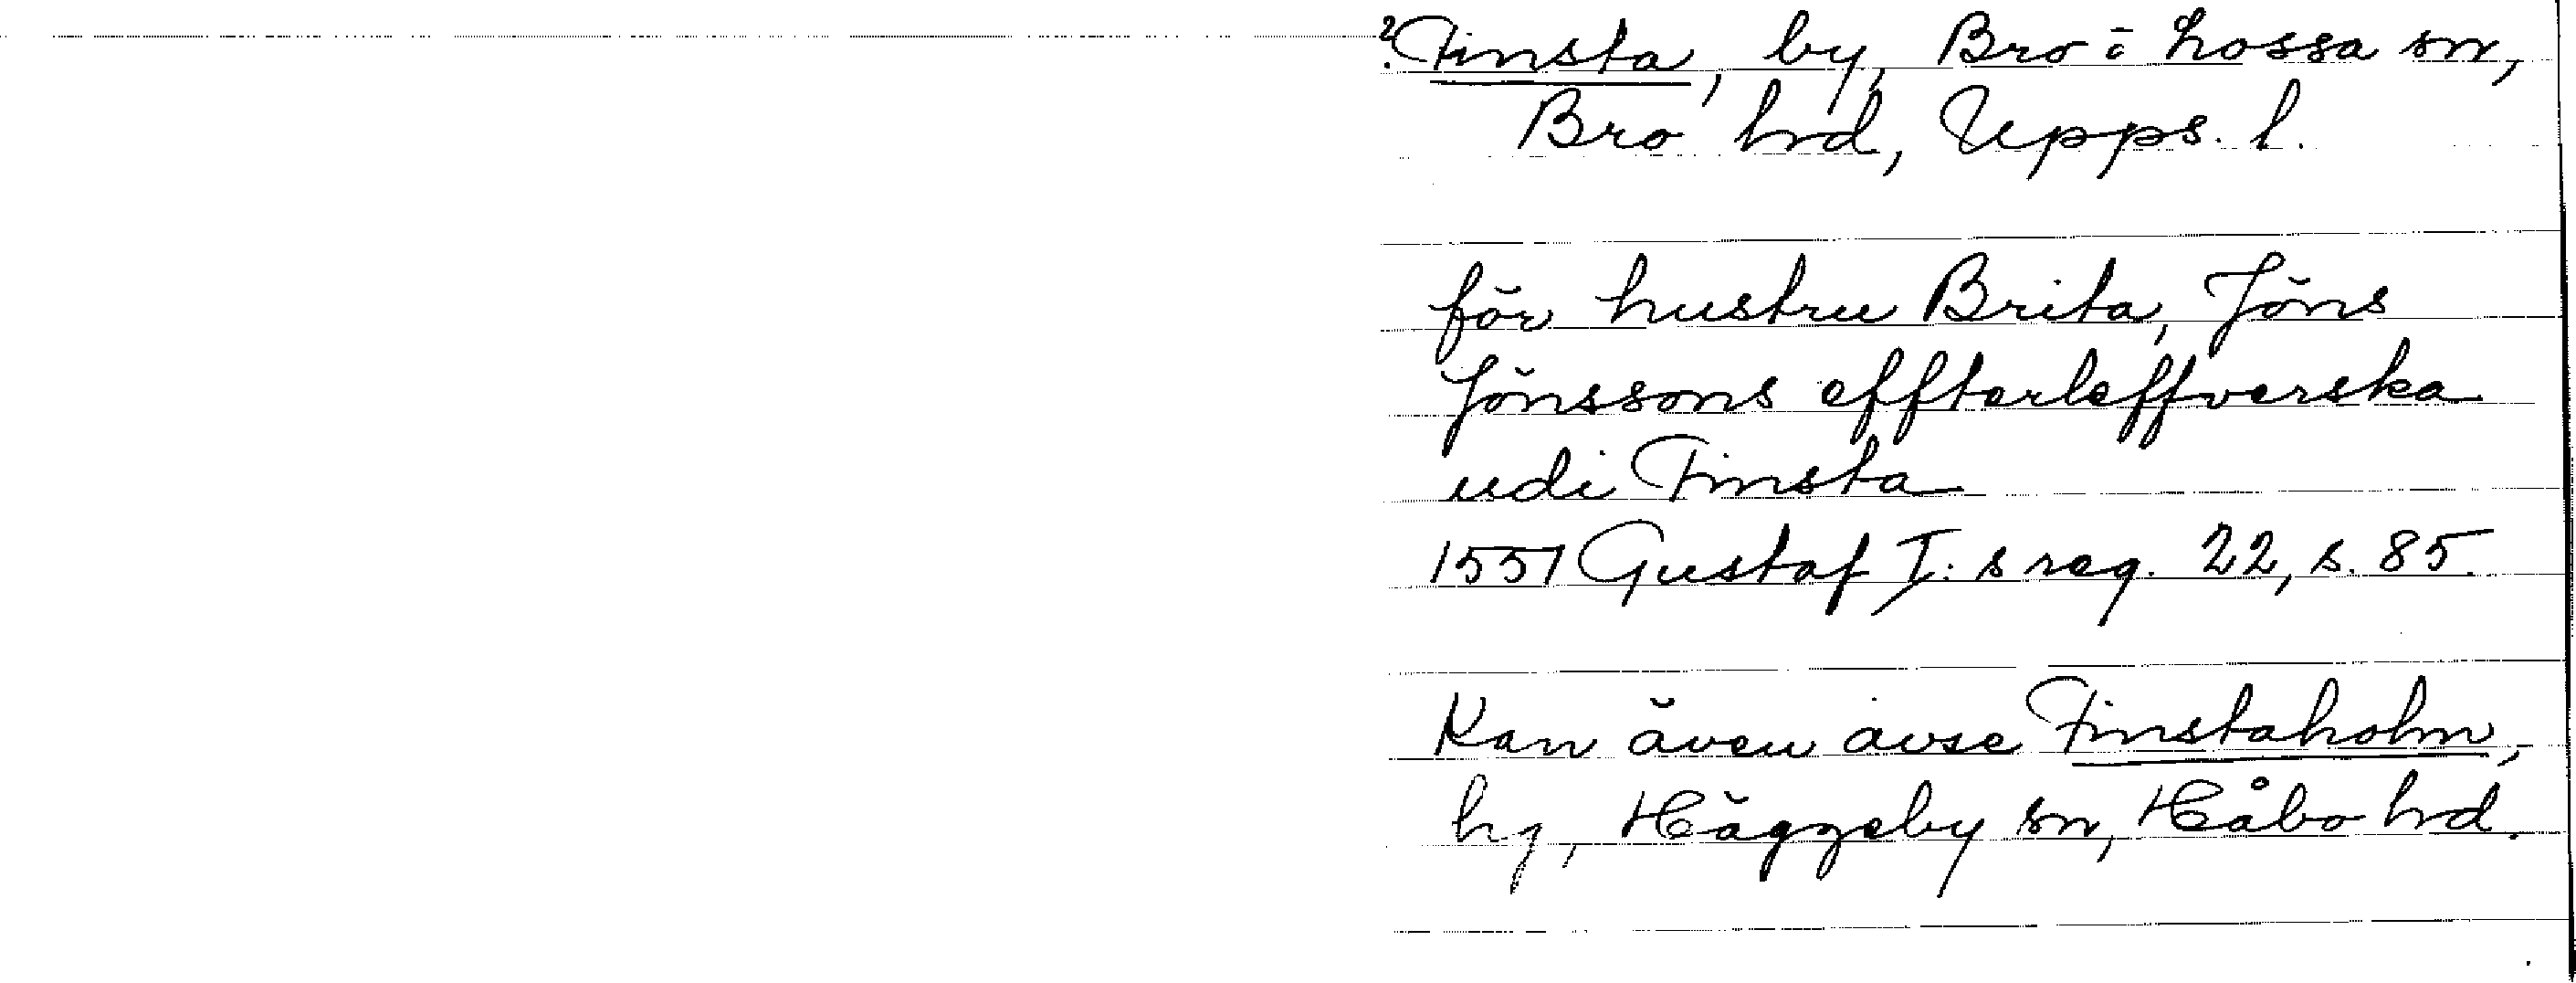 ? Finsta, by, Bro ö Lossa sn,
Bro hrd, Upps. l.
för hustru Brita, Jöns
Jönssons effterleffverska
udi Finsta
1551 Gustaf I:s reg. 22, s. 85.
Kan även avse Finstaholm,
hg, Häggeby sn, Håbo hrd.